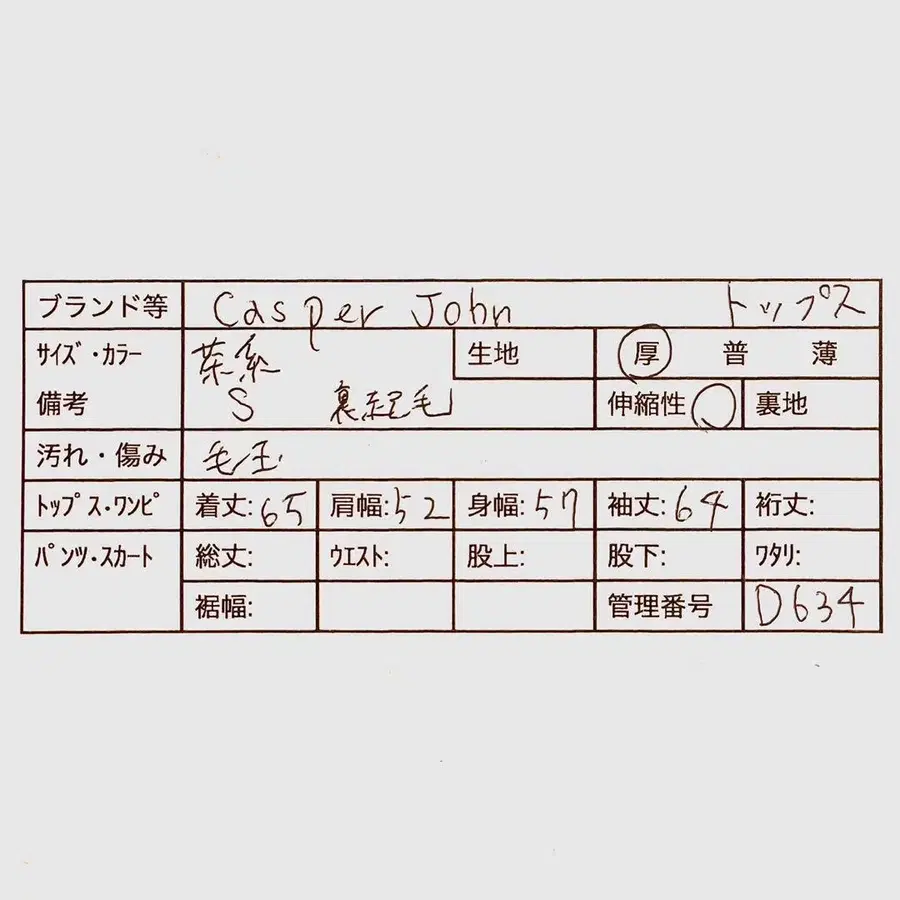 ブランド等 Casper John トップス
サイズ・カラー 茶系 生地 厚 普 薄
備考 S 裏起毛 伸縮性 裏地
汚れ・傷み 毛玉
トップス・ワンピ 着丈:65 肩幅:52 身幅:57 袖丈:64 裄丈:
パンツ・スカート 総丈: ウエスト: 股上: 股下: ワタリ:
裾幅: 管理番号 D634